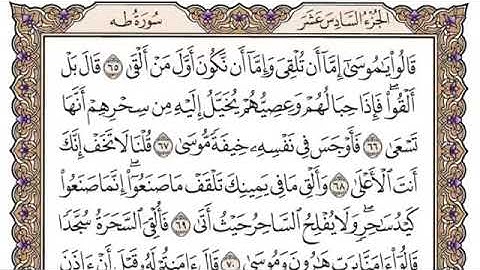 الجُزْءُ السَّادِسَ عَشَرَ سُورَةُ طه
قَالُوا۟ يَٰمُوسَىٰٓ إِمَّآ أَن تُلْقِىَ وَإِمَّآ أَن نَّكُونَ أَوَّلَ مَنْ أَلْقَىٰ ٦٥ قَالَ بَلْ
أَلْقُوا۟ۖ فَإِذَا حِبَالُهُمْ وَعِصِيُّهُمْ يُخَيَّلُ إِلَيْهِ مِن سِحْرِهِمْ أَنَّهَا
تَسْعَىٰ ٦٦ فَأَوْجَسَ فِى نَفْسِهِۦ خِيفَةً مُّوسَىٰ ٦٧ قُلْنَا لَا تَخَفْ إِنَّكَ
أَنتَ ٱلْأَعْلَىٰ ٦٨ وَأَلْقِ مَا فِى يَمِينِكَ تَلْقَفْ مَا صَنَعُوٓا۟ۖ إِنَّمَا صَنَعُوا۟
كَيْدُ سَٰحِرٍۖ وَلَا يُفْلِحُ ٱلسَّاحِرُ حَيْثُ أَتَىٰ ٦٩ فَأُلْقِىَ ٱلسَّحَرَةُ سُجَّدًا
قَالُوٓا۟ ءَامَنَّا بِرَبِّ هَٰرُونَ وَمُوسَىٰ ٧٠ قَالَ ءَامَنتُمْ لَهُۥ قَبْلَ أَنْ ءَاذَنَ